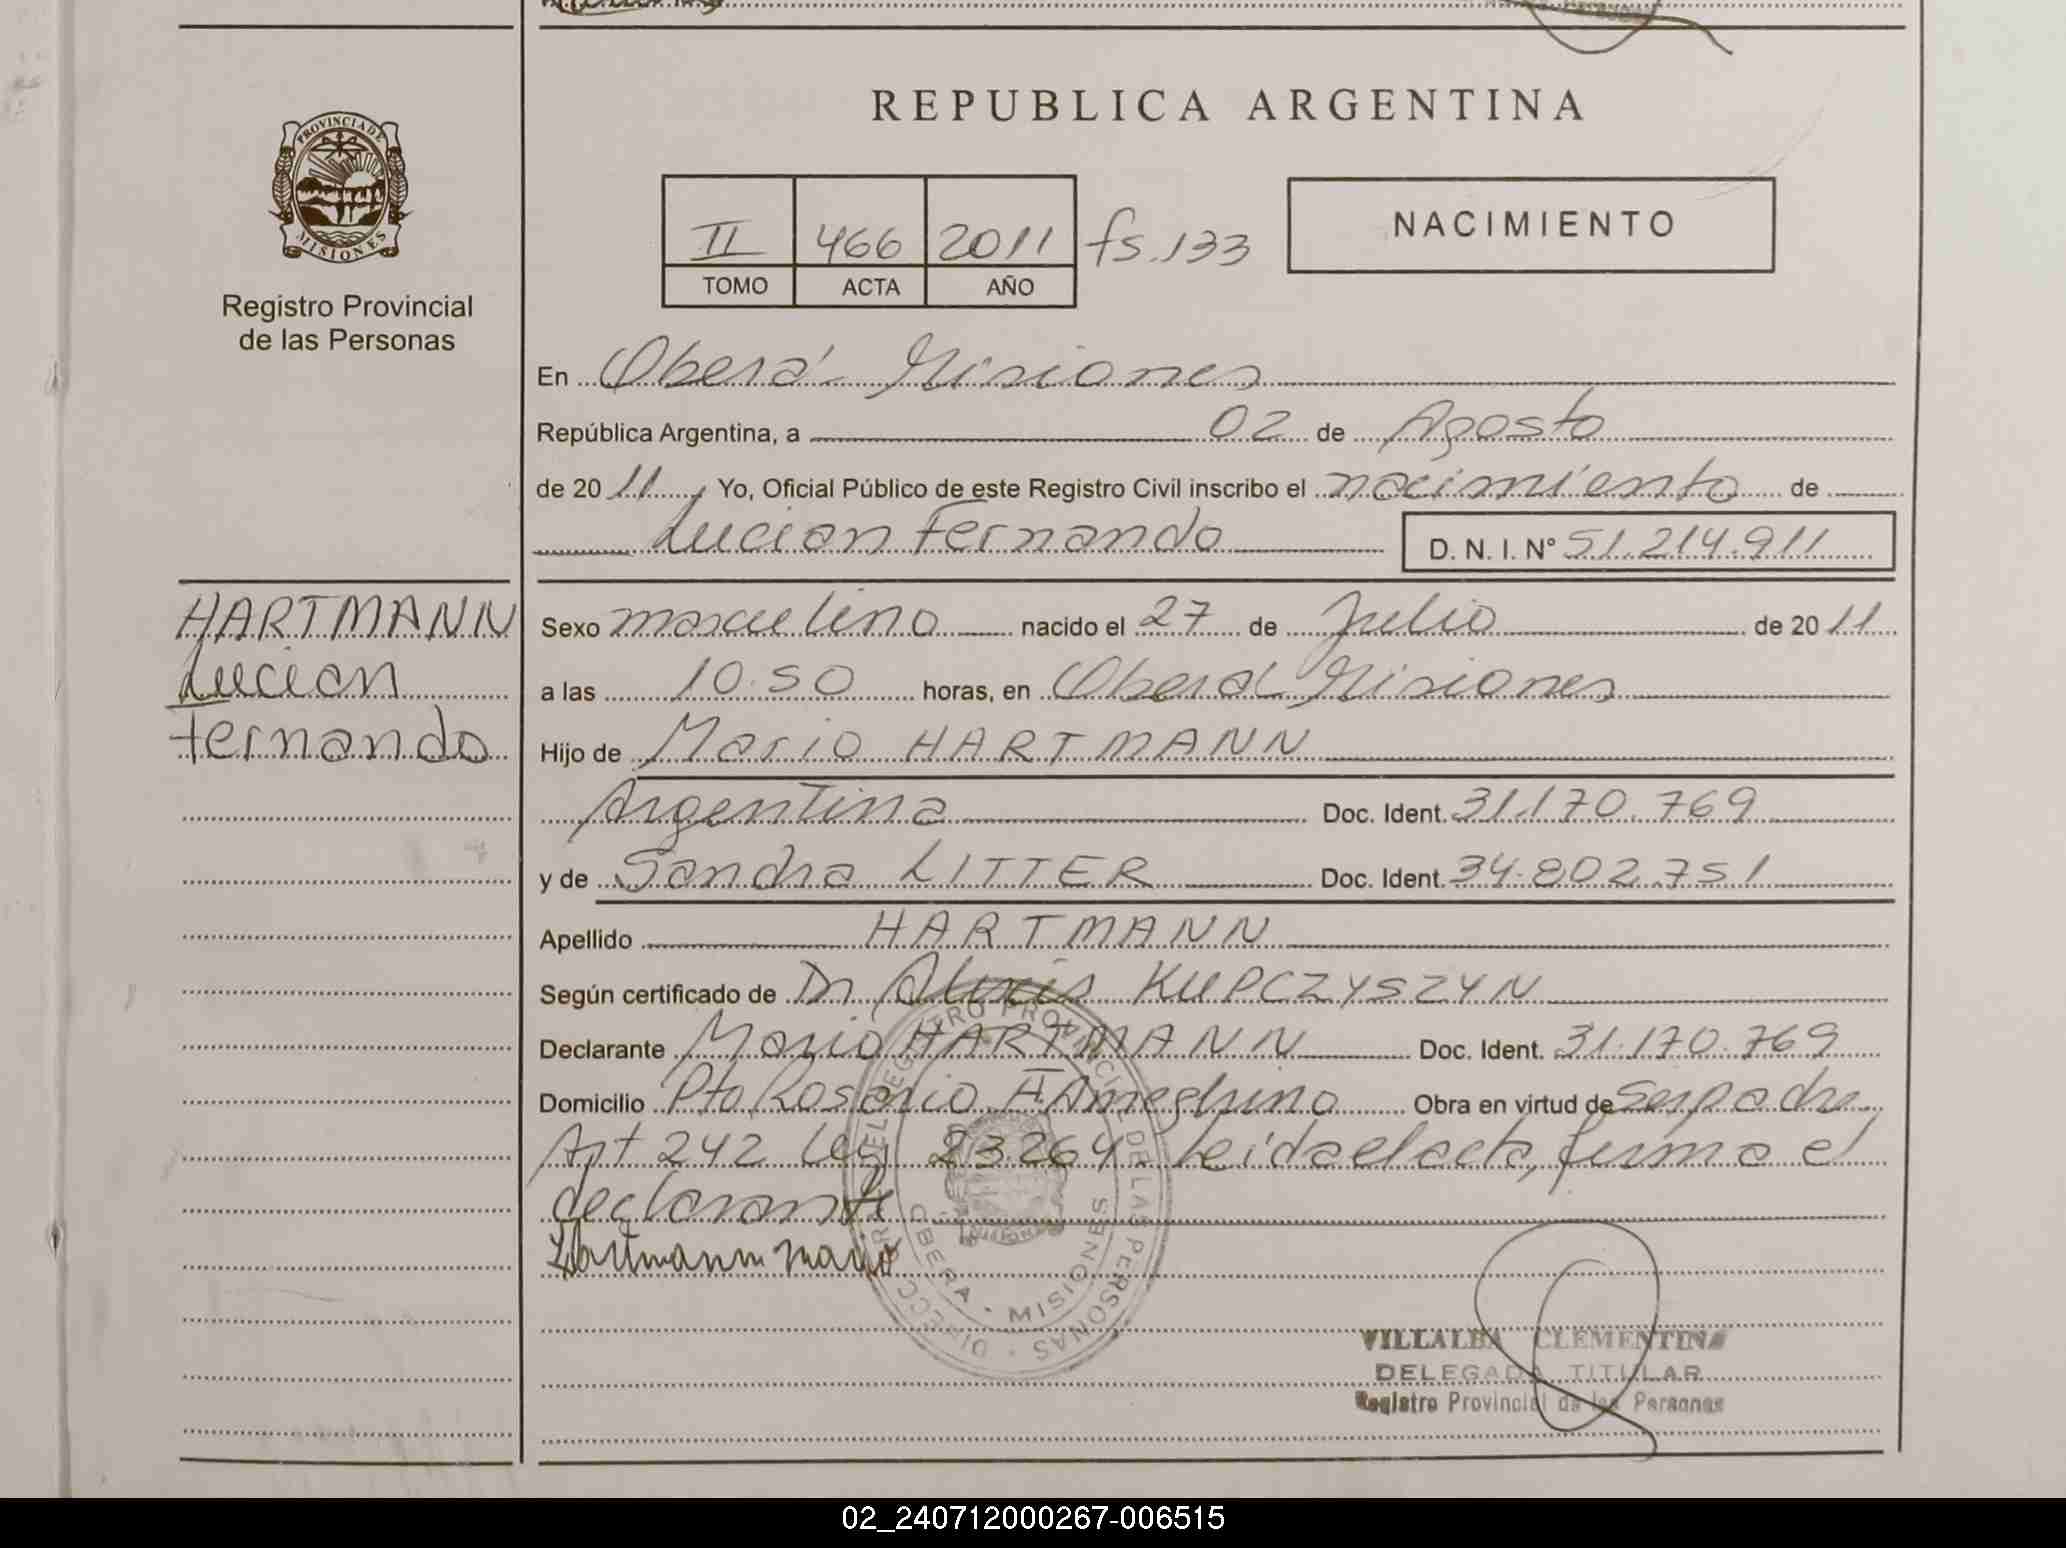 REPUBLICA ARGENTINA
PROVINCIA DE
MISIONES
Registro Provincial
de las Personas
II 466 2011 fs.133
TOMO ACTA AÑO
NACIMIENTO
En Oberá - Misiones
República Argentina, a 02 de Agosto
de 2011, Yo, Oficial Público de este Registro Civil inscribo el nacimiento de
Lucian Fernando D. N. I. Nº 51.214.911
HARTMANN
Lucian
Fernando
Sexo masculino nacido el 27 de Julio de 2011
a las 10.50 horas, en Oberá Misiones
Hijo de Mario HARTMANN
Argentina Doc. Ident. 31.170.769
y de Sandra LITTER Doc. Ident. 34.802.751
Apellido HARTMANN
Según certificado de Dr Alexis KUPCZYSZYN
Declarante Mario HARTMANN Doc. Ident. 31.170.769
Domicilio Pto Rosario F. Ameghino Obra en virtud de ser padre
Art 242 ley 23264. Leida el acta, firma el
declarante
Hartmann Mario
OBERA - MISIONES
VILLALBA CLEMENTINA
DELEGADA TITULAR
Registro Provincial de las Personas
02_240712000267-006515